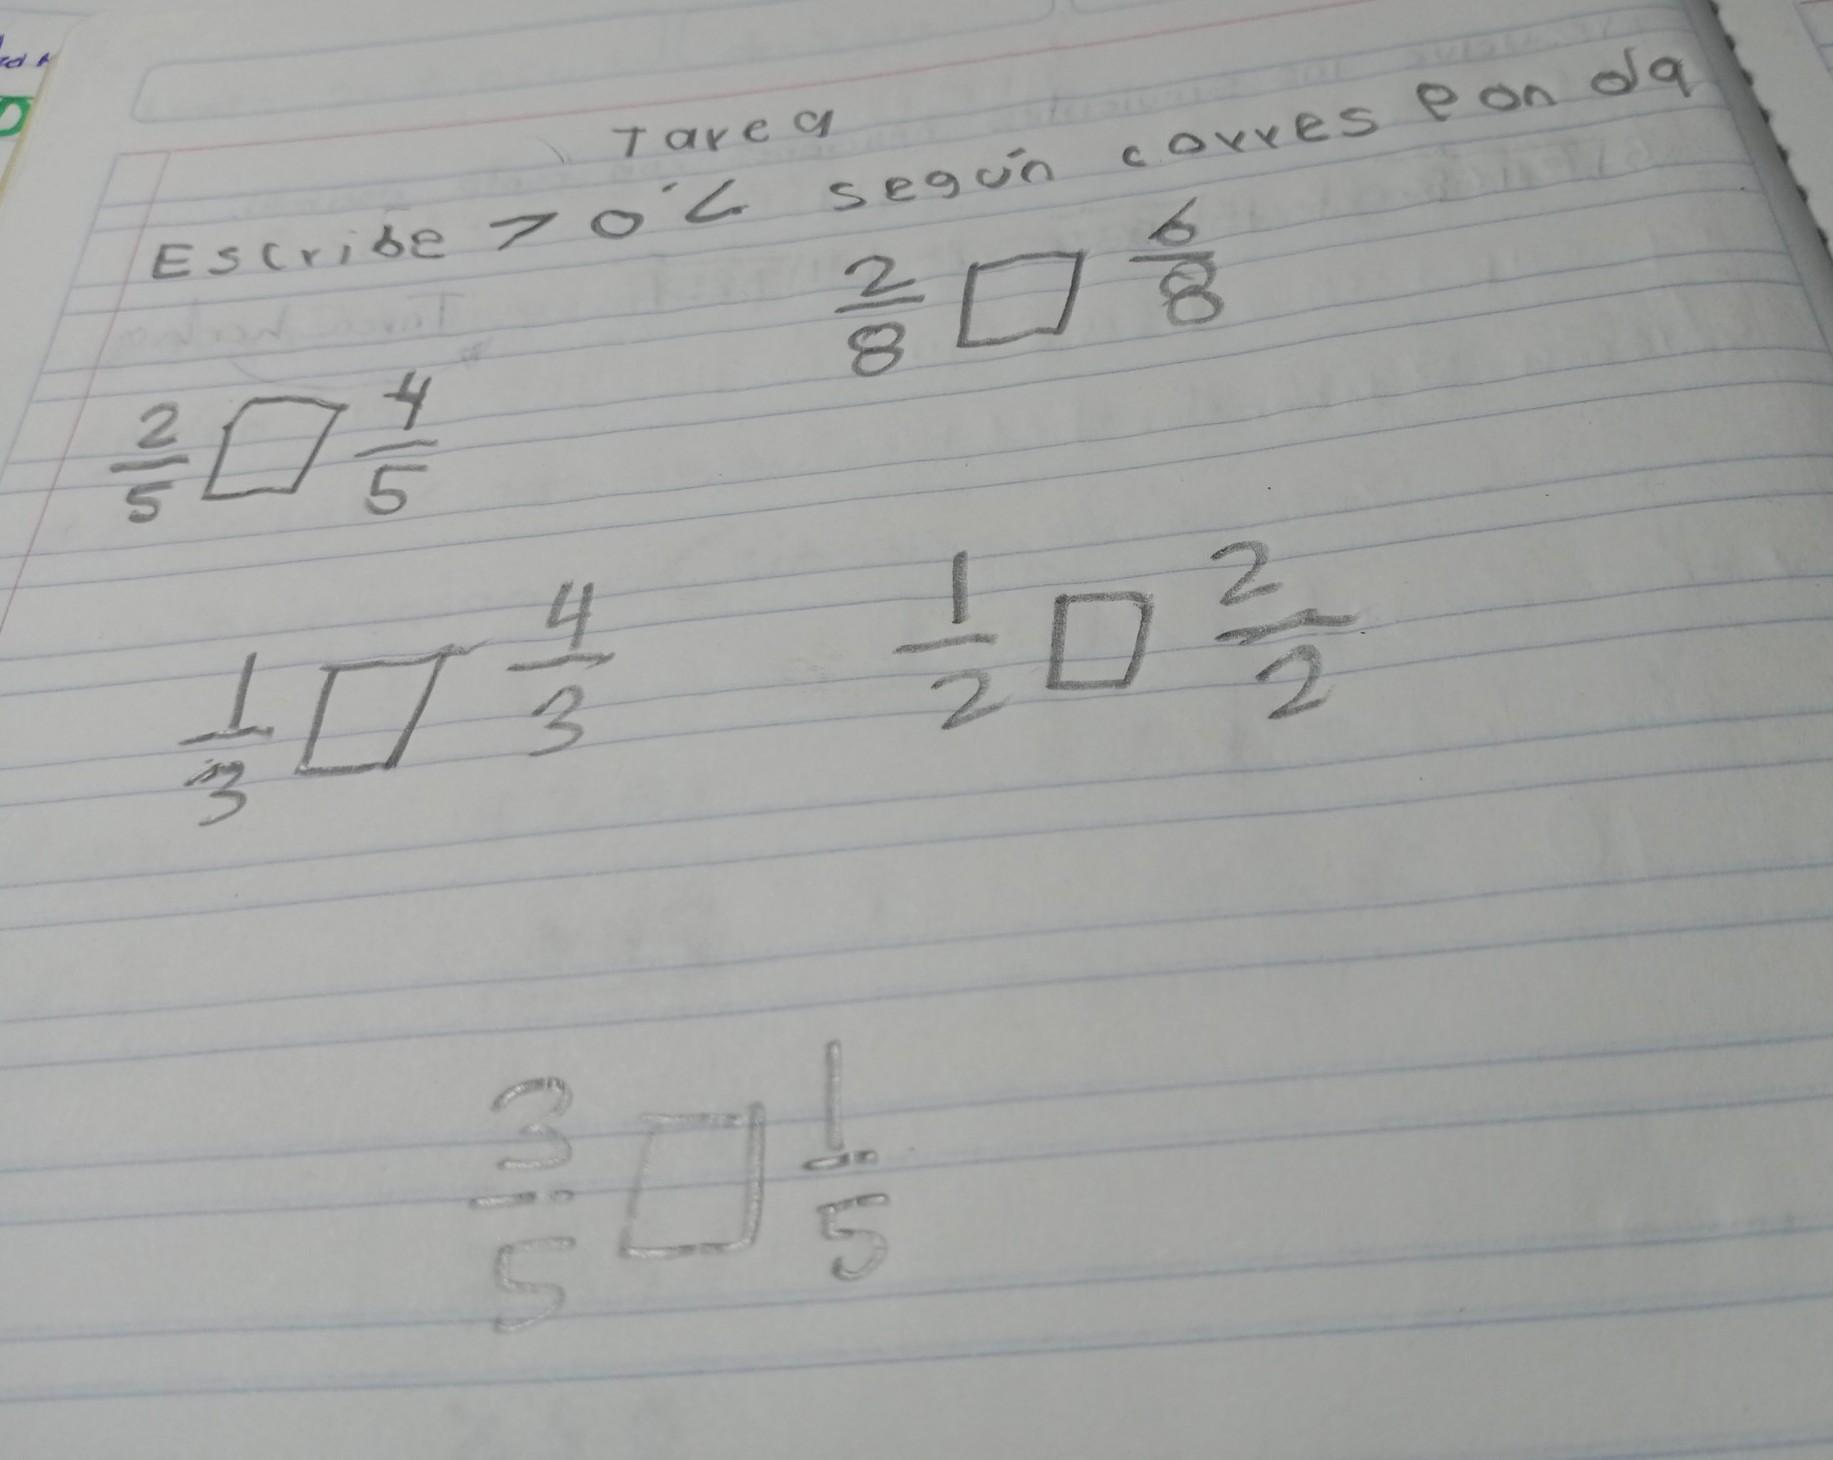 Tarea
Escribe > o < según corresponda
2/8 □ 6/8
2/5 □ 4/5
1/3 □ 4/3
1/2 □ 2/2
3/5 □ 1/5